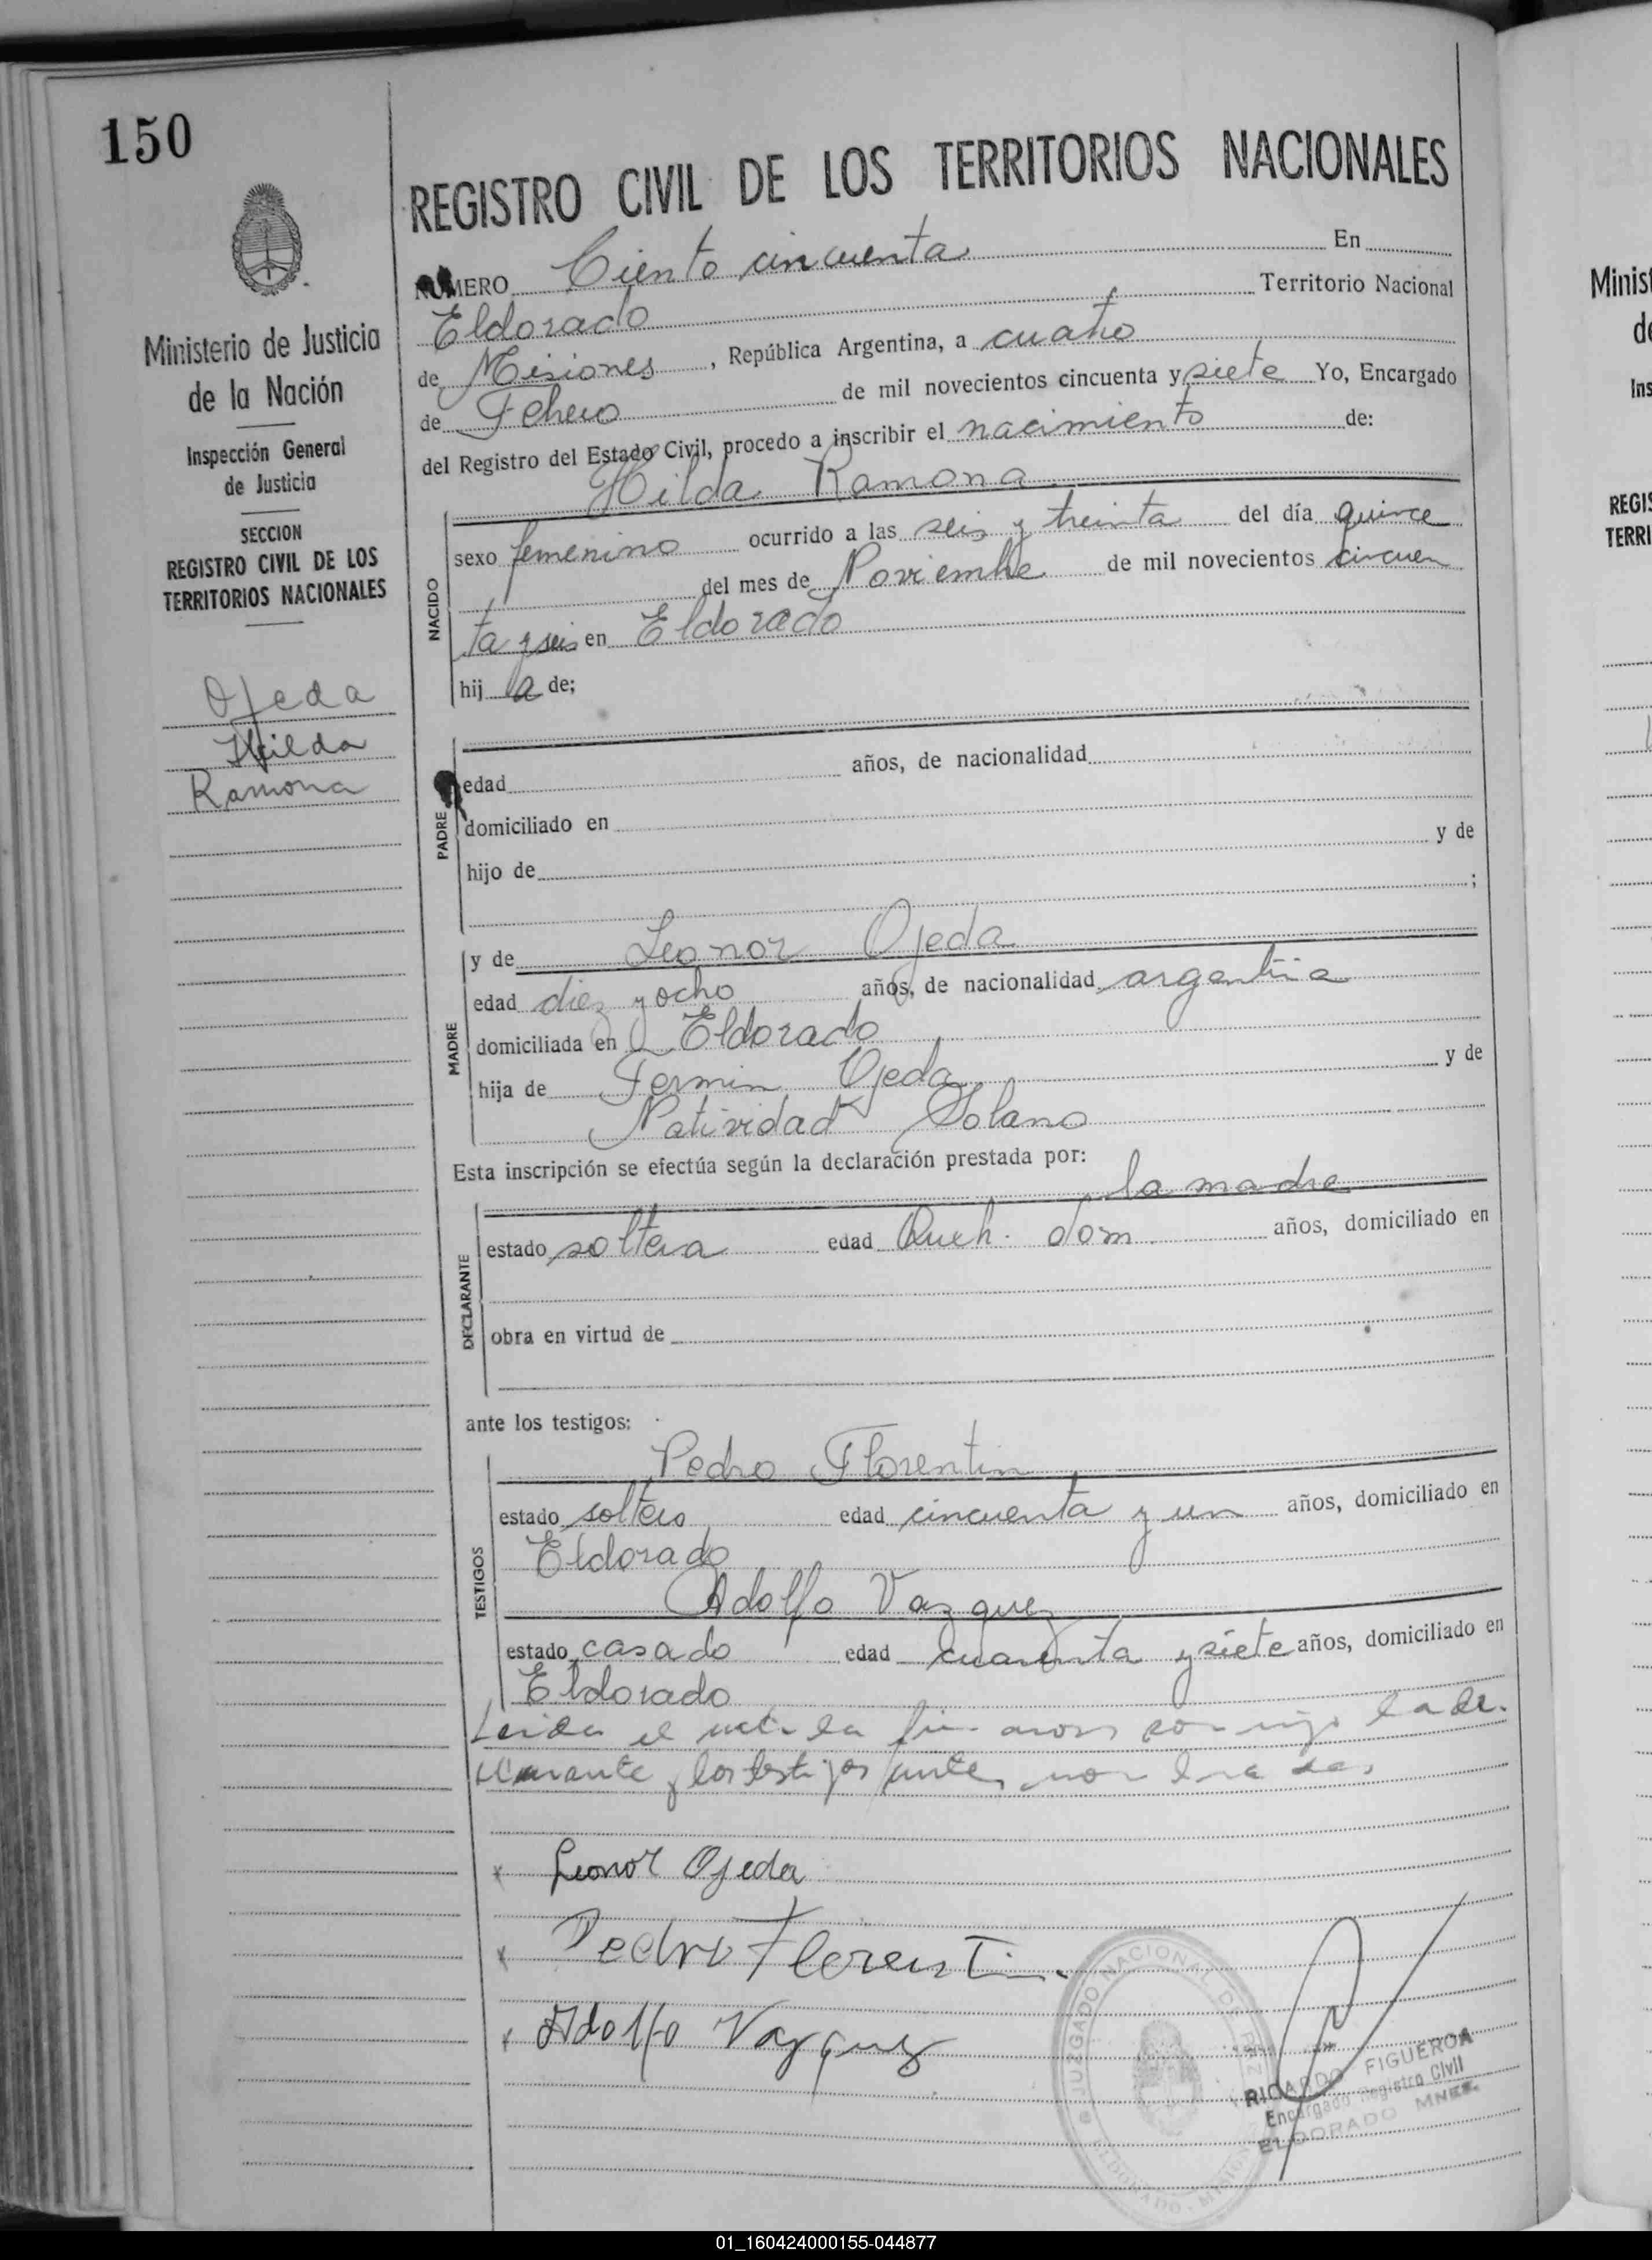 150
REGISTRO CIVIL DE LOS TERRITORIOS NACIONALES
Ministerio de Justicia
de la Nación
Inspección General
de Justicia
SECCION
REGISTRO CIVIL DE LOS
TERRITORIOS NACIONALES
Ojeda
Hilda
Ramona
NUMERO Ciento cincuenta En
Eldorado Territorio Nacional
de Misiones, República Argentina, a cuatro
de Febrero de mil novecientos cincuenta y siete Yo, Encargado
del Registro del Estado Civil, procedo a inscribir el nacimiento de:
Hilda Ramona
NACIDO
sexo femenino ocurrido a las seis y treinta del día quince
del mes de Noviembre de mil novecientos cincuen
ta y seis en Eldorado
hij a de;
PADRE
edad años, de nacionalidad
domiciliado en
hijo de y de
;
MADRE
y de Leonor Ojeda
edad diez y ocho años, de nacionalidad argentina
domiciliada en Eldorado
hija de Fermin Ojeda y de
Natividad Solano
Esta inscripción se efectúa según la declaración prestada por:
la madre
DECLARANTE
estado soltera edad dom. años, domiciliado en
obra en virtud de
ante los testigos:
Pedro Florentin
TESTIGOS
estado soltero edad cincuenta y un años, domiciliado en
Eldorado
Adolfo Vazquez
estado casado edad cuarenta y siete años, domiciliado en
Eldorado
Leida el acta la la de.
clarante y los testigos antes
x Leonor Ojeda
x Pedro Florentin.
x Adolfo Vazquez
JUZGADO NACIONAL DE PAZ
ELDORADO - MISIONES
RICARDO FIGUEROA
Encargado Registro Civil
ELDORADO MNES.
Minist
de
Ins
REGIS
TERRI
01_160424000155-044877